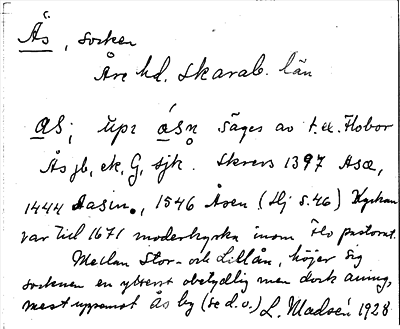 Ås, socken
Åse hd. Skarab. län
ås; upr ásn säges av t.ex. Flobor
Ås jb, ek, G, sjk. Skrevs 1397 Asæ,
1444 aasin, 1546 Åsen (Hj s.46) Kyrkan
var till 1671 moderkyrka inom Flo pastorat.
Mellan Stor- och Lillån, höjer sig
socknen en ytterst obetydlig men dock aning,
mest uppemot Ås by (se d.o.) L. Madsén 1928